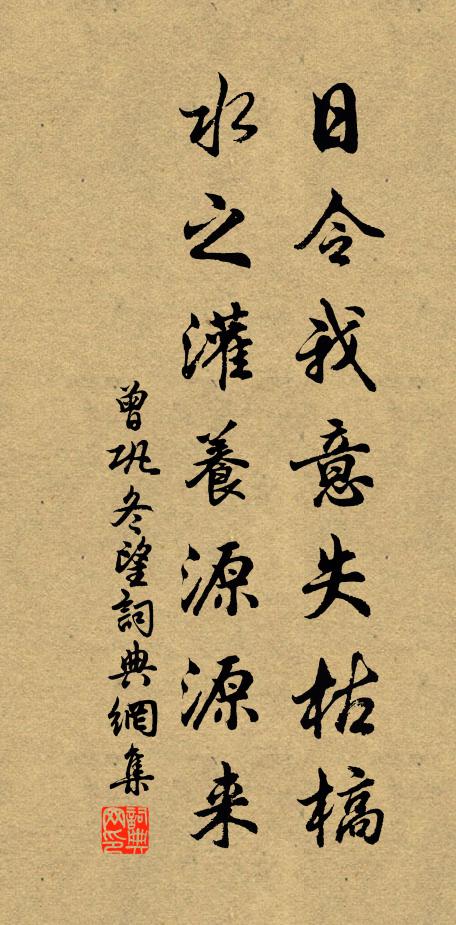 日令我意失枯槁
水之灌養源源来
曾巩冬望詞典網集
詞典网印